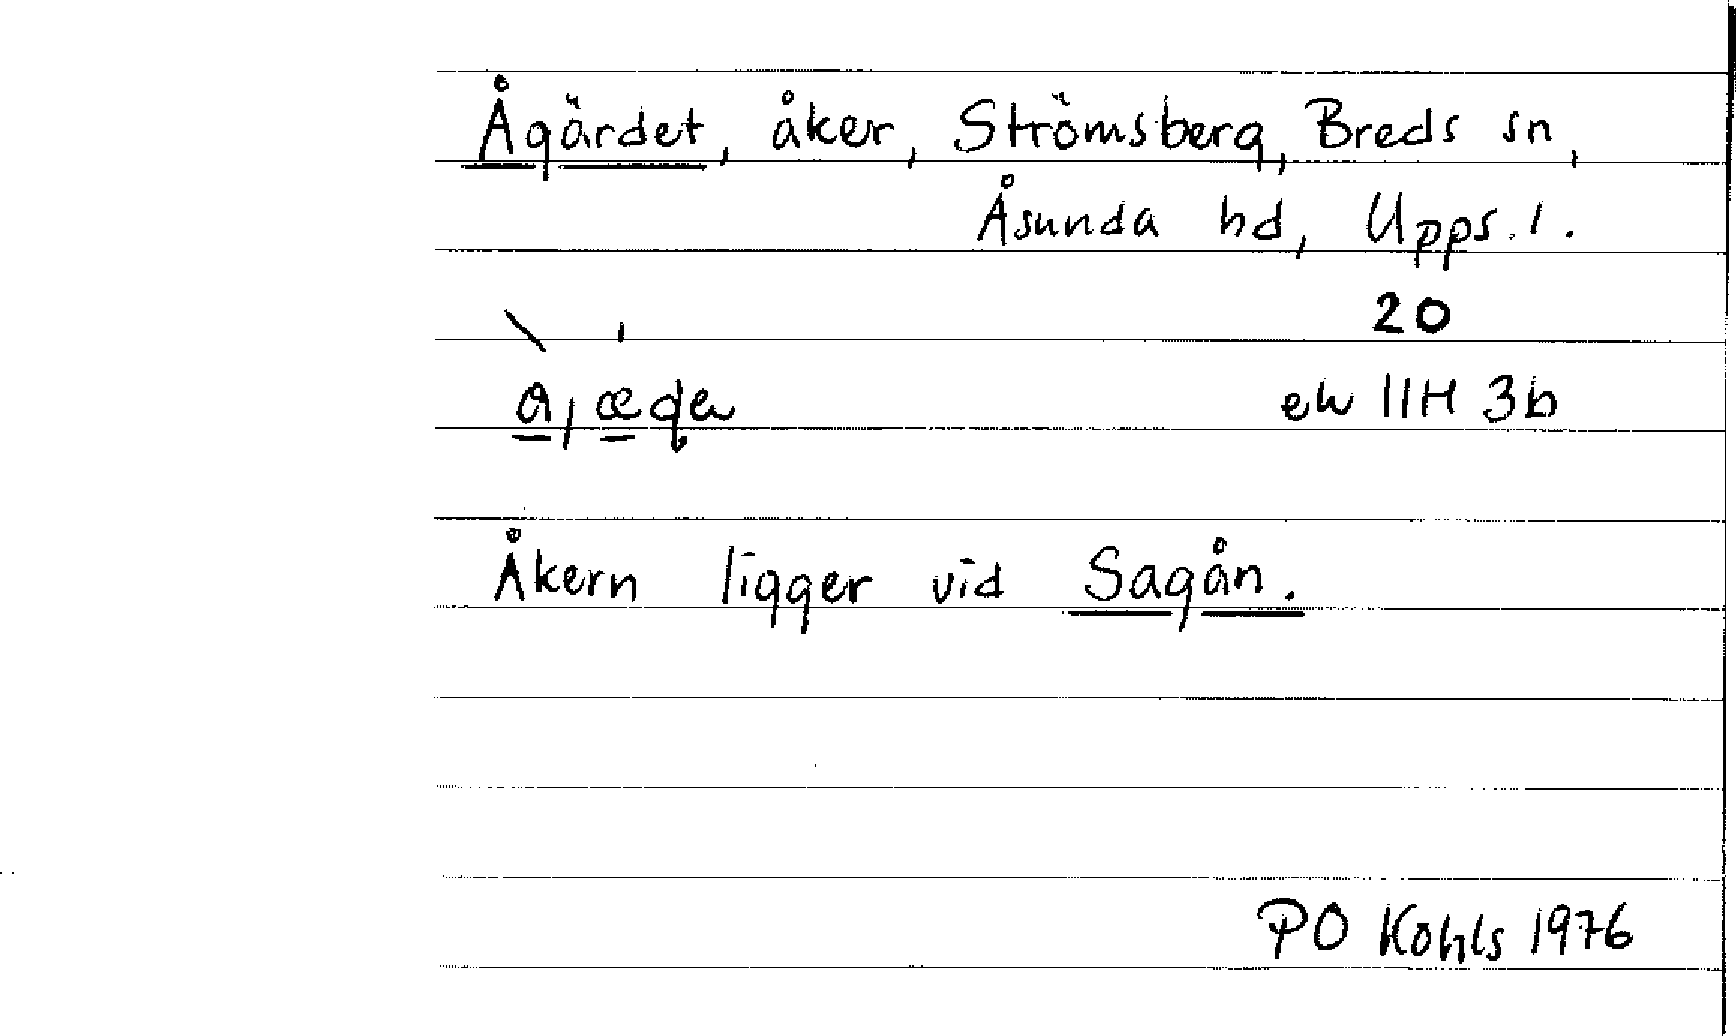 Ågärdet, åker, Strömsberg, Breds sn,
Åsunda hd, Upps. l.
20
ek 11H 3b
Åkern ligger vid Sagån.
PO Kohls 1976